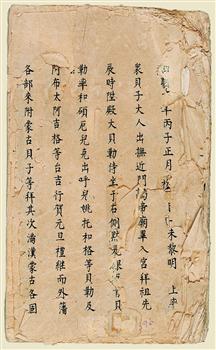 年丙子正月 未黎明 上率
衆貝子大人出撫近門謁堂廟畢入宮拜祖先
辰時陞殿大貝勒待坐于右側默 貝
勒率和碩厄児克出呼兒姚托和格等貝勒及
阿布太阿吉格等台吉行賀元旦禮継而外藩
各部來附蒙古貝子等拜其次滿漢蒙古各固